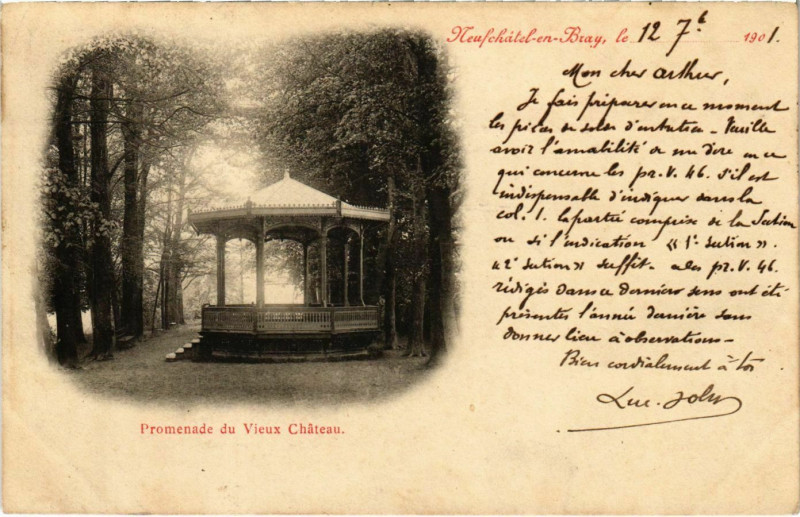 Neufchâtel-en-Bray, le 12 7bre 1901.
Mon cher Arthur,
Je fais préparer en ce moment
les pièces de solde d'entretien - Veuille
avoir l'amabilité de me dire en ce
qui concerne les pr. V. 46. s'il est
indispensable d'indiquer dans la
col. 1. la partie comprise de la Section
ou si l'indication « 1e Section ».
« 2e Section » suffit. Les pr. V. 46.
rédigés dans ce dernier sens ont été
présentés l'année dernière sans
donner lieu à observations -
Bien cordialement à toi
Promenade du Vieux Château.